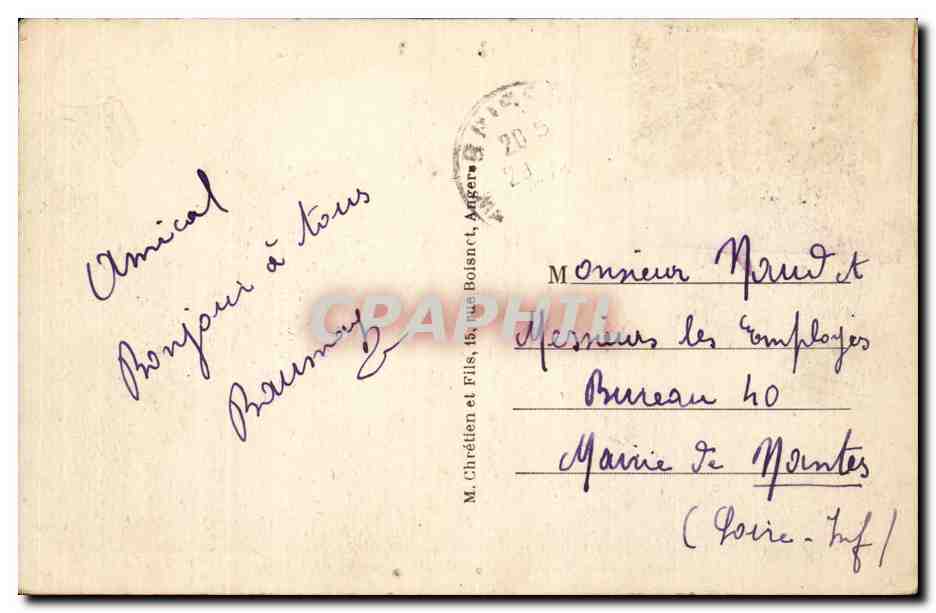 Amical
Bonjour à tous
M. Chrétien et Fils, 15, rue Boisnet, Angers
20 5
Monsieur Naud et
Messieurs les Employés
Bureau 40
Mairie de Nantes
(Loire-Inf)
CPAPHIL